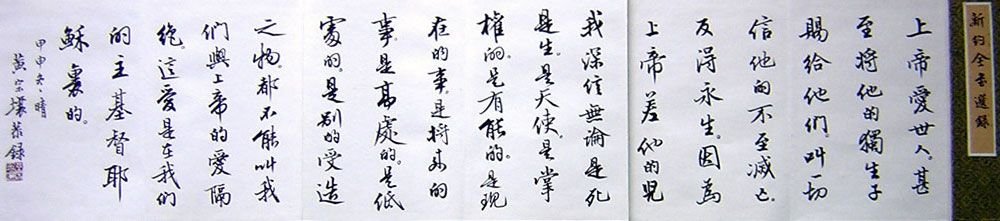 新約全書選錄
上帝愛世人。甚
至將他的獨生子
賜給他們。叫一切
信他的不至滅亡。
反得永生。因為
上帝差他的兒
我深信無論是死
是生。是天使。是掌
權的。是有能的。是現
在的事。是將來的
事。是高處的。是低
處的。是別的受造
之物。都不能叫我
們與上帝的愛隔
絕。這愛是在我們
的主基督耶
穌裏的。
甲申冬、晴
黃宗恭錄